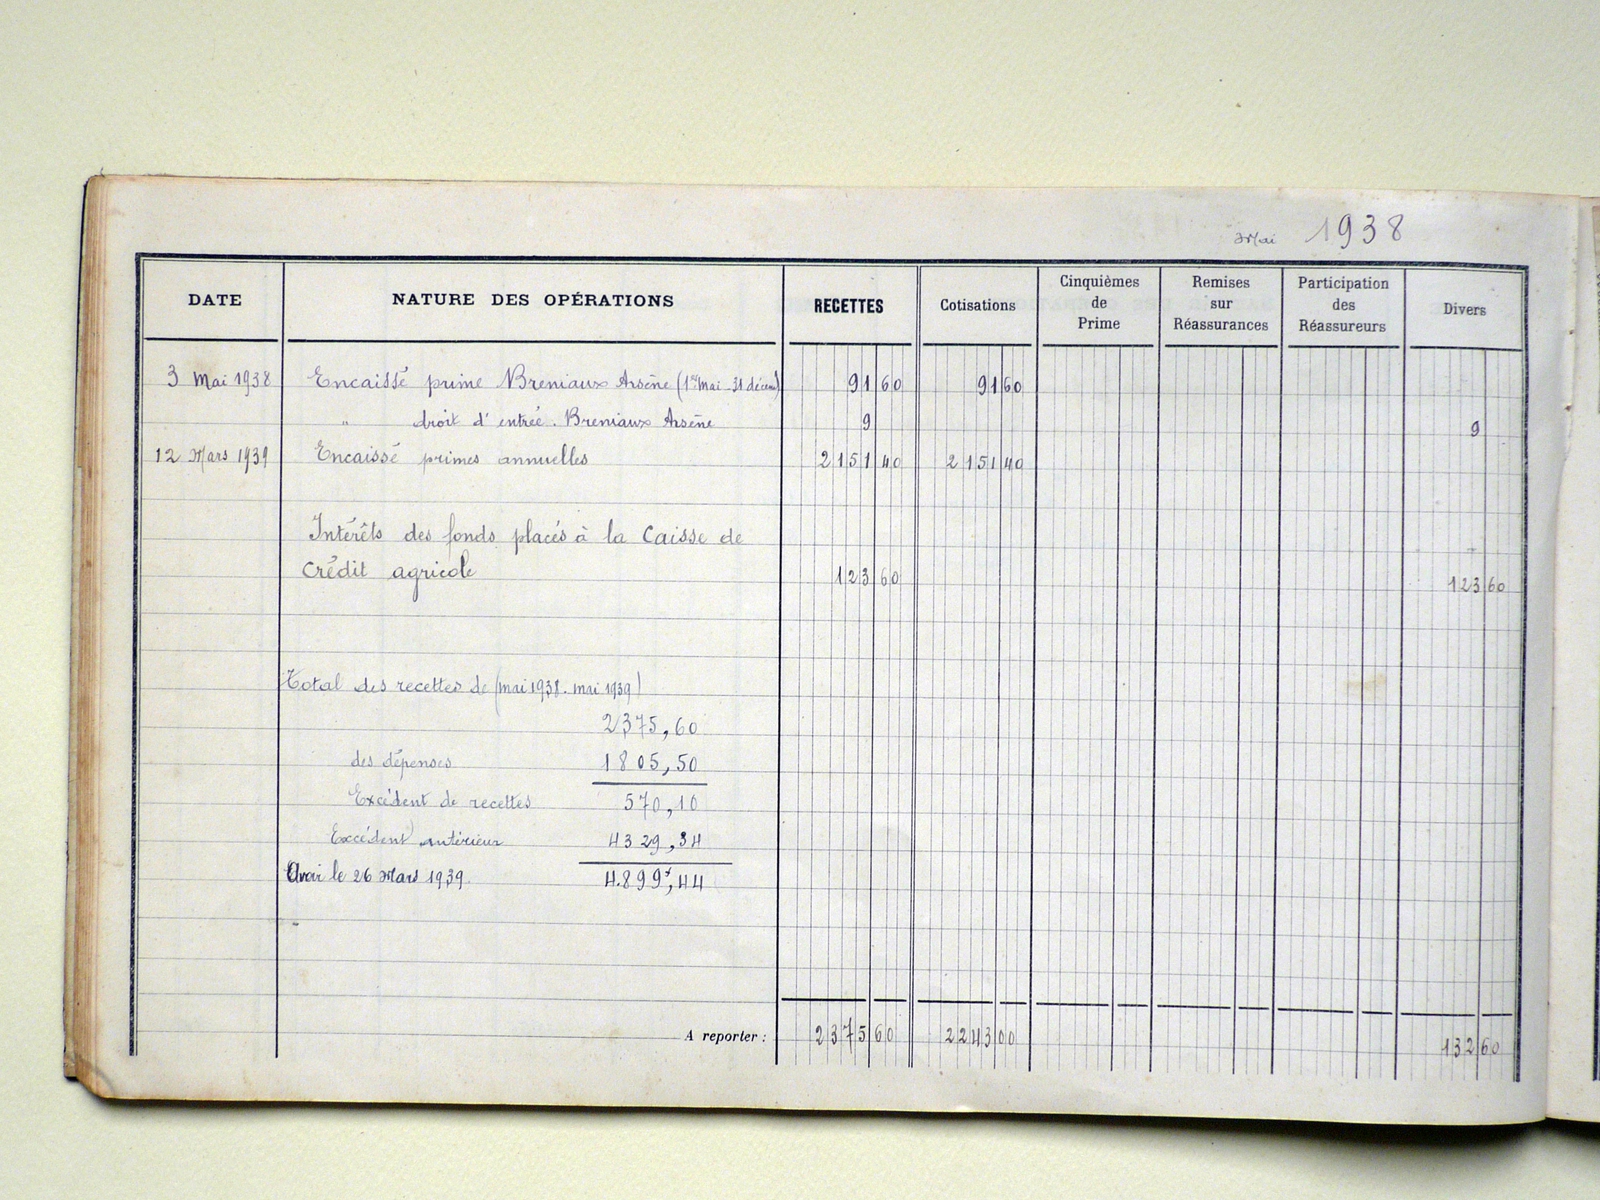 Mai 1938
DATE NATURE DES OPÉRATIONS RECETTES Cotisations Cinquièmes de Prime Remises sur Réassurances Participation des Réassureurs Divers
3 Mai 1938 Encaissé prime Breniaux Arsène (1er Mai - 31 décem) 91 60 91 60
" droit d'entrée. Breniaux Arsène 9 9
12 Mars 1939 Encaissé primes annuelles 2151 40 2151 40
Intérêts des fonds placés à la Caisse de
Crédit agricole 123 60 123 60
Total des recettes de (mai 1938. mai 1939)
2375,60
des dépenses 1805,50
Excédent de recettes 570,10
Excédent antérieur 4329,34
Avoir le 26 Mars 1939 4.899f,44
A reporter : 2375 60 2243 00 132 60